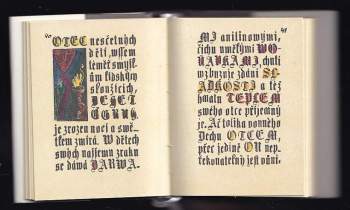 OTEC nesčetných
dětí, wssem
téměř smysl-
ům lidským
slaužících,
DEHET
ČERNÝ,
je zrozen nocí a swě-
tlem zmírá. W dětech
swých nassemu zraku
se dáwá BARWA-
MI anilinowými,
čichu umělými WO-
ŇAWKAMI, chuti
wzbuzuje zdání SL-
ADKOSTI a též
hmatu TEPLEM
swého otce příjemný
je. Ač tolika wonného
Dechu OTCEM,
přec jedině ON nep-
řekonatelný jest wůní.